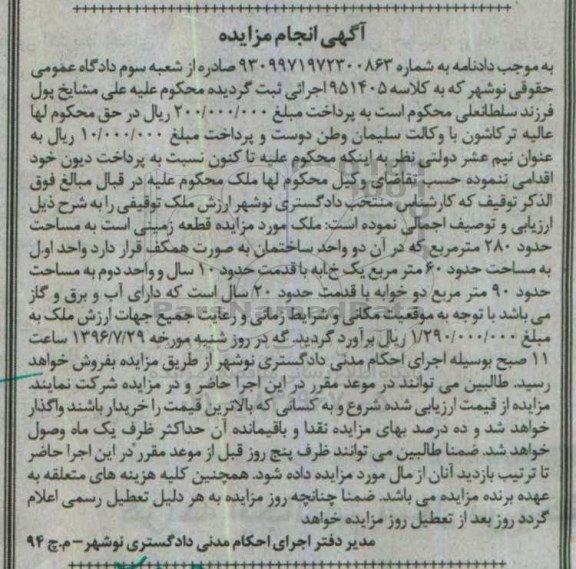 آگهی انجام مزایده
به موجب دادنامه به شماره ۹۳۰۹۹۷۱۹۷۲۳۰۰۸۶۳ صادره از شعبه سوم دادگاه عمومی
حقوقی نوشهر که به کلاسه ۹۵۱۴۰۵ اجرائی ثبت گردیده محکوم علیه علی مشایخ پول
فرزند سلطانعلی محکوم است به پرداخت مبلغ ۲۰۰/۰۰۰/۰۰۰ ریال در حق محکوم لها
عالیه ترکاشون با وکالت سلیمان وطن دوست و پرداخت مبلغ ۱۰/۰۰۰/۰۰۰ ریال به
عنوان نیم عشر دولتی نظر به اینکه محکوم علیه تا کنون نسبت به پرداخت دیون خود
اقدامی ننموده حسب تقاضای وکیل محکوم لها ملک محکوم علیه در قبال مبالغ فوق
الذکر توقیف که کارشناس منتخب دادگستری نوشهر ارزش ملک توقیفی را به شرح ذیل
ارزیابی و توصیف اجمالی نموده است: ملک مورد مزایده قطعه زمینی است به مساحت
حدود ۲۸۰ مترمربع که در آن دو واحد ساختمان به صورت همکف قرار دارد واحد اول
به مساحت حدود ۶۰ متر مربع یک خوابه با قدمت حدود ۱۰ سال و واحد دوم به مساحت
حدود ۹۰ متر مربع دو خوابه با قدمت حدود ۲۰ سال است که دارای آب و برق و گاز
می باشد با توجه به موقعیت مکانی و شرایط زمانی و رعایت جمیع جهات ارزش ملک به
مبلغ ۱/۲۹۰/۰۰۰/۰۰۰ ریال برآورد گردید. که در روز شنبه مورخه ۱۳۹۶/۷/۲۹ ساعت
۱۱ صبح بوسیله اجرای احکام مدنی دادگستری نوشهر از طریق مزایده بفروش خواهد
رسید. طالبین می توانند در موعد مقرر در این اجرا حاضر و در مزایده شرکت نمایند.
مزایده از قیمت ارزیابی شده شروع و به کسانی که بالاترین قیمت را خریدار باشند واگذار
خواهد شد و ده درصد بهای مزایده نقدا و باقیمانده آن حداکثر ظرف یک ماه وصول
خواهد شد. ضمنا طالبین می توانند ظرف پنج روز قبل از موعد مقرر در این اجرا حاضر
تا ترتیب بازدید آنان از مال مورد مزایده داده شود. همچنین کلیه هزینه های متعلقه به
عهده برنده مزایده می باشد. ضمنا چنانچه روز مزایده به هر دلیل تعطیل رسمی اعلام
گردد روز بعد از تعطیل روز مزایده خواهد
مدیر دفتر اجرای احکام مدنی دادگستری نوشهر – م.چ ۹۴